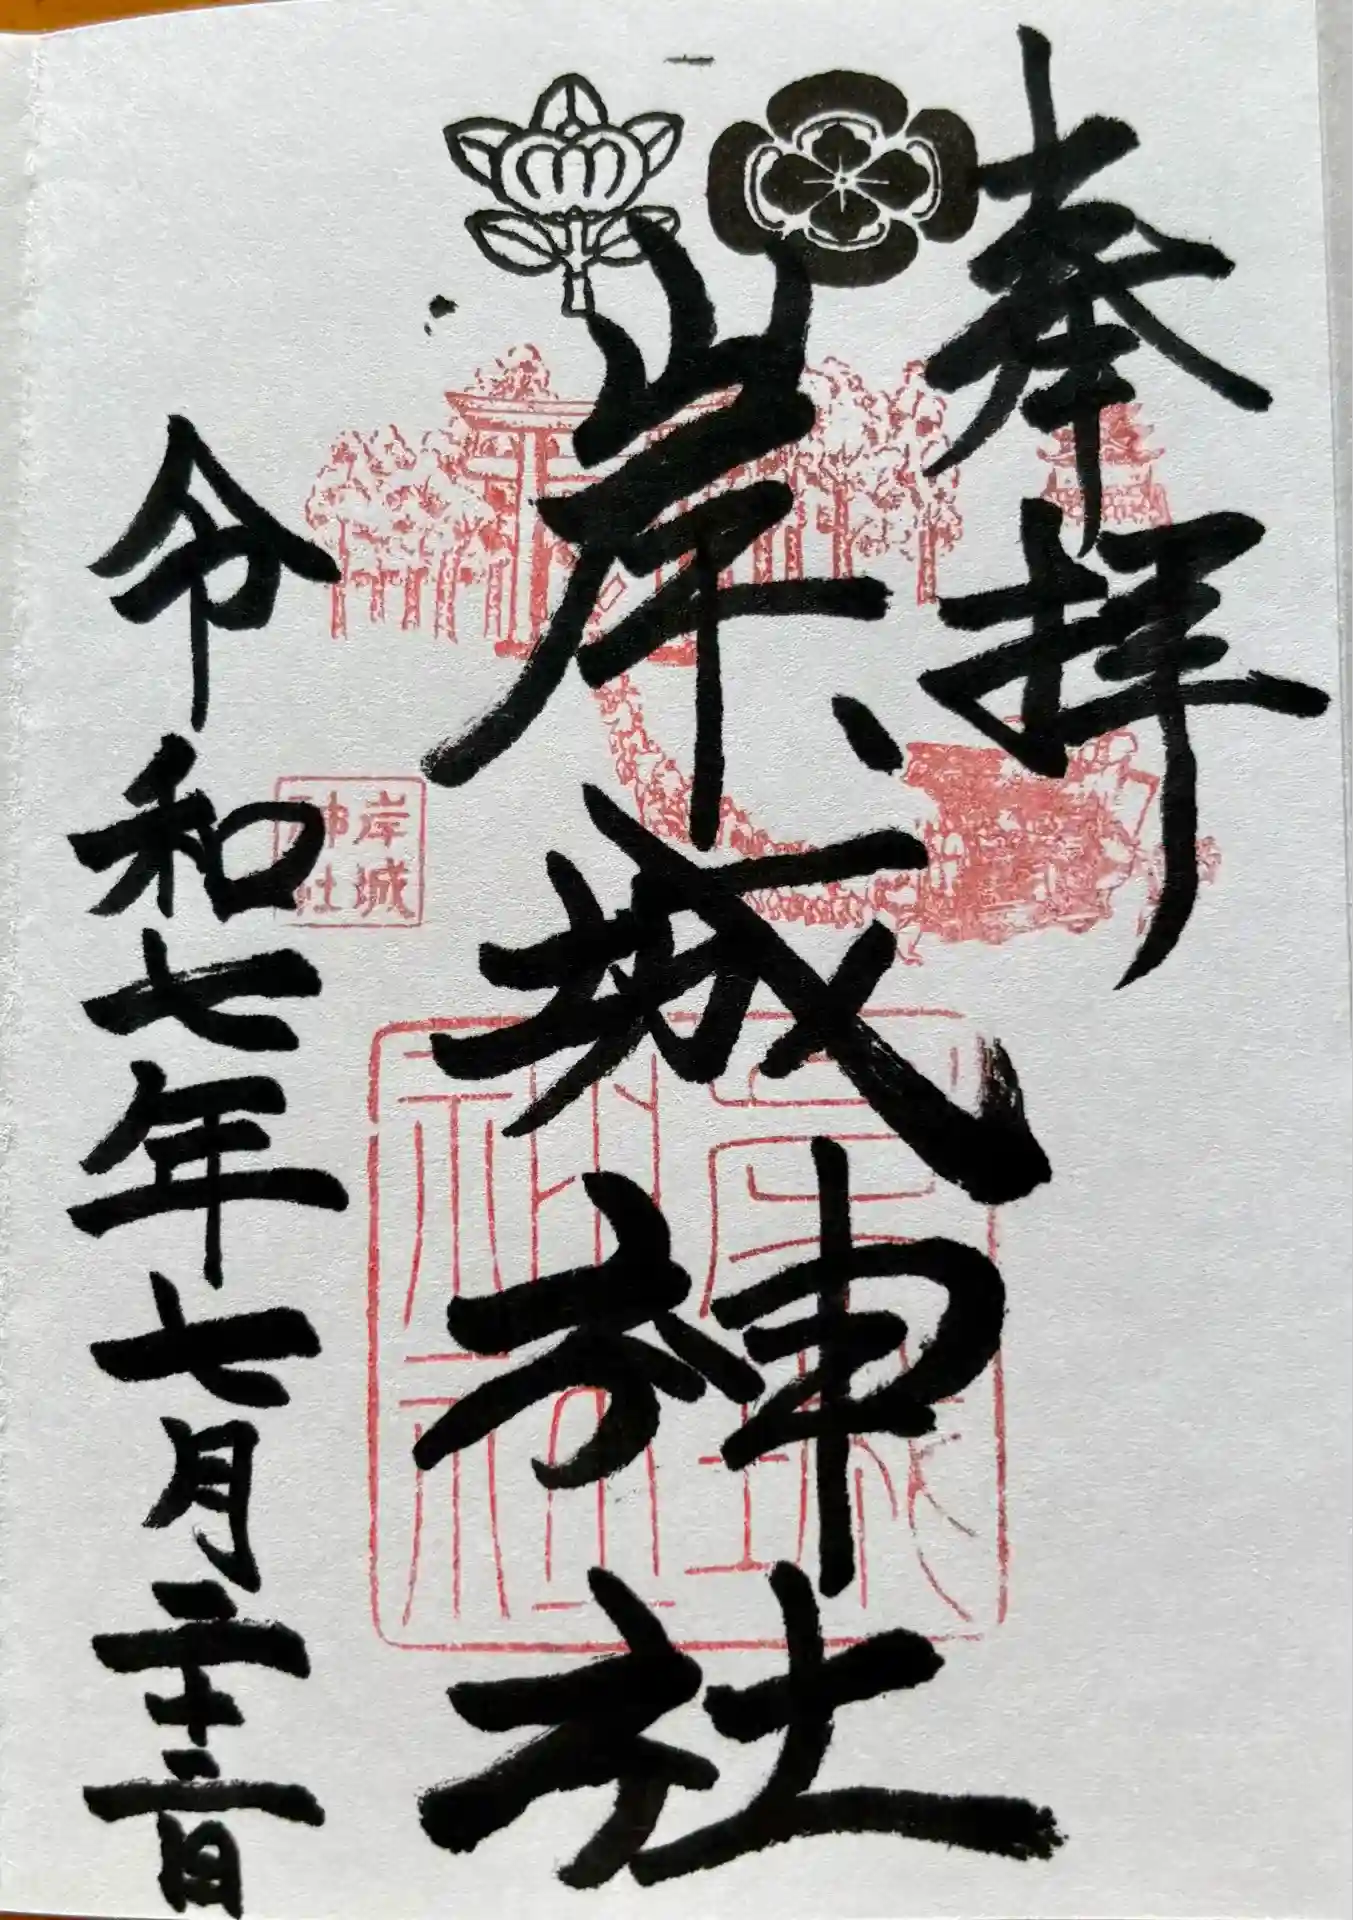 奉拝
岸城神社
令和七年七月二十二日
岸城
神社